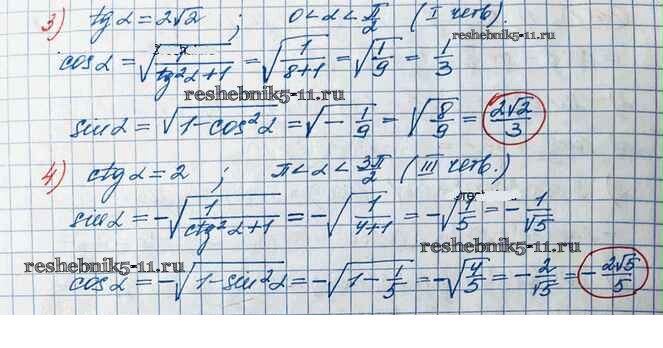 3) tg α = 2√2 ; 0 < α < π/2 (I четв).
reshebnik5-11.ru
cos α = √(1/(tg²α+1)) = √(1/(8+1)) = √(1/9) = 1/3
reshebnik5-11.ru
sin α = √(1-cos²α) = √(-1/9) = √(8/9) = 2√2/3
4) ctg α = 2 ; π < α < 3π/2 (III четв.)
sin α = -√(1/(ctg²α+1)) = -√(1/(4+1)) = -√(1/5) = -1/√5
reshebnik5-11.ru
reshebnik5-11.ru
cos α = -√(1-sin²α) = -√(1-1/5) = -√(4/5) = -2/√5 = -2√5/5